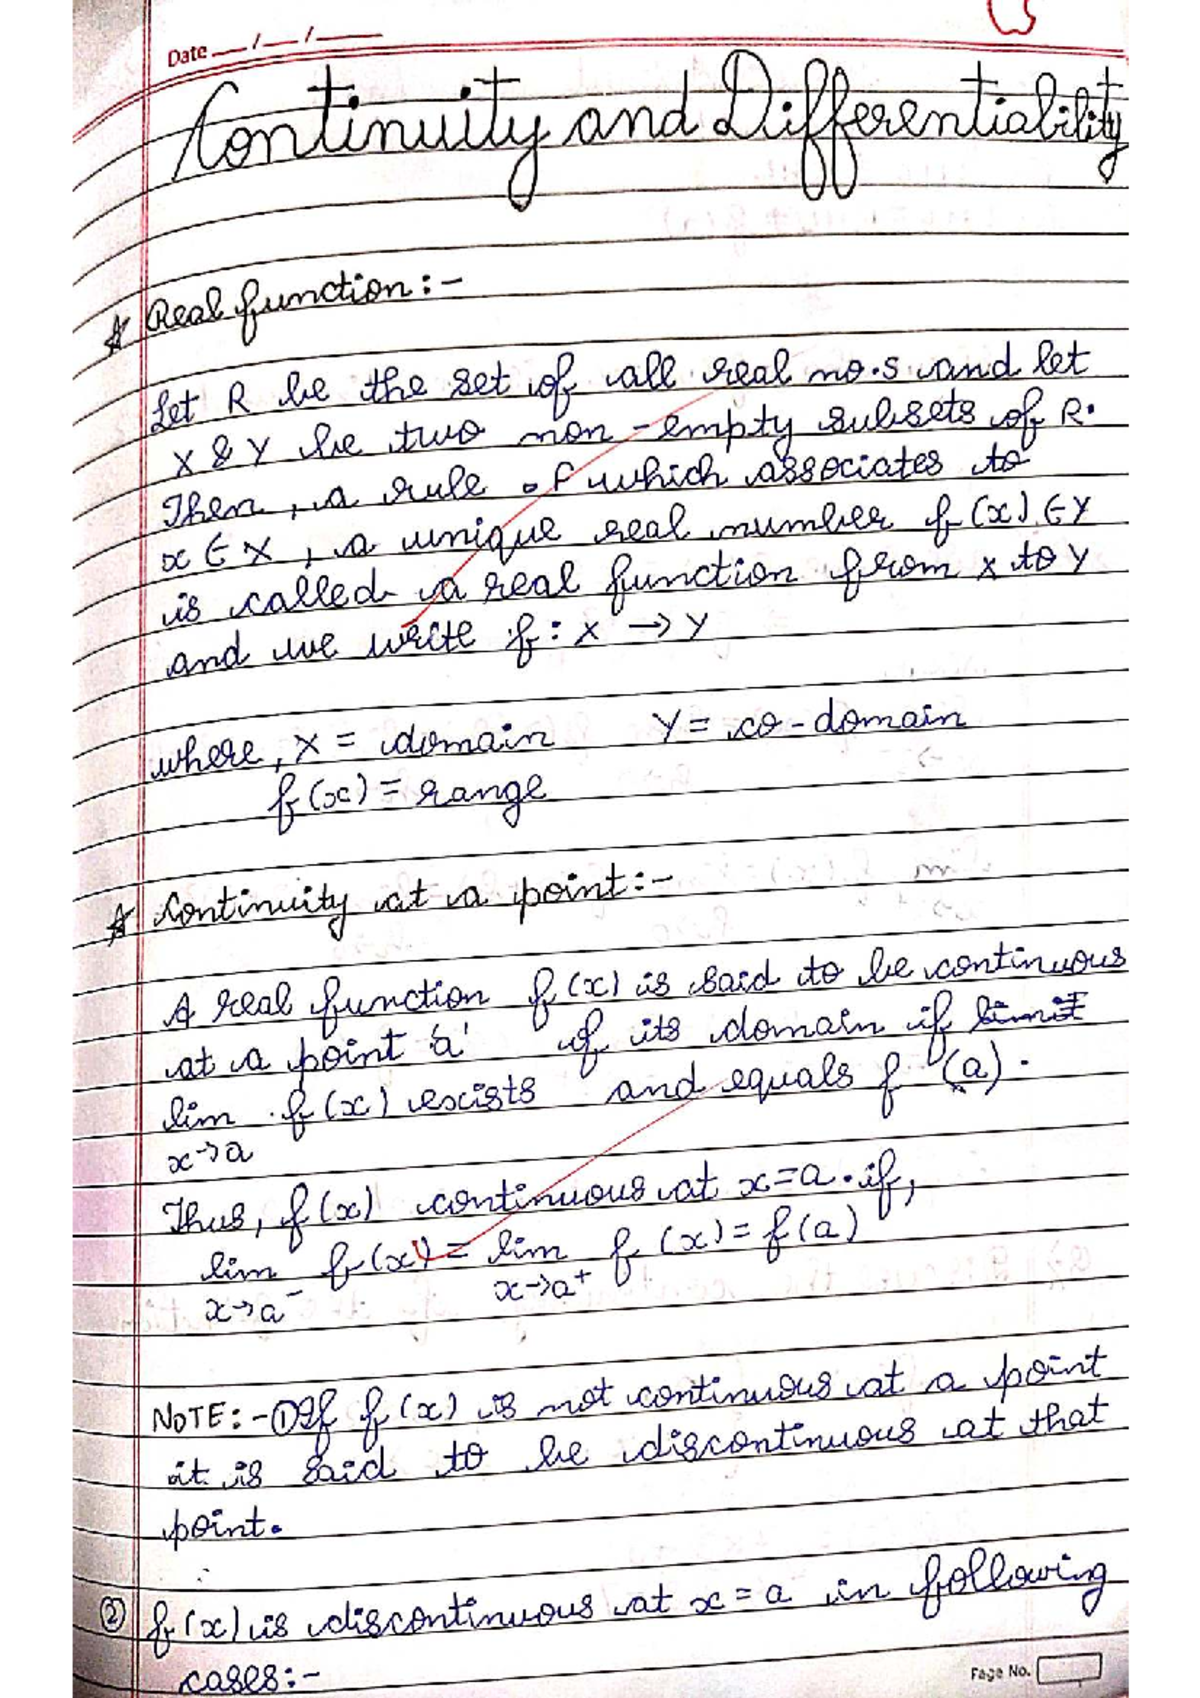 Date __/__/____
Continuity and Differentiability
Real function:-
Let R be the set of all real no.s and let
X & Y be two non-empty subsets of R.
Then, a rule of which associates to
x ∈ X, a unique real number f(x) ∈ Y
is called a real function from X to Y
and we write f: X → Y
where, X = domain Y = co-domain
f(x) = range
Continuity at a point:-
A real function f(x) is said to be continuous
at a point 'a' of its domain if limit
lim f(x) exists and equals f(a).
x→a
Thus, f(x) continuous at x=a. if,
lim f(x) = lim f(x) = f(a)
x→a⁻ x→a⁺
NOTE:-① If f(x) is not continuous at a point
it is said to be discontinuous at that
point.
② f(x) is discontinuous at x = a in following
cases:-
Page No.